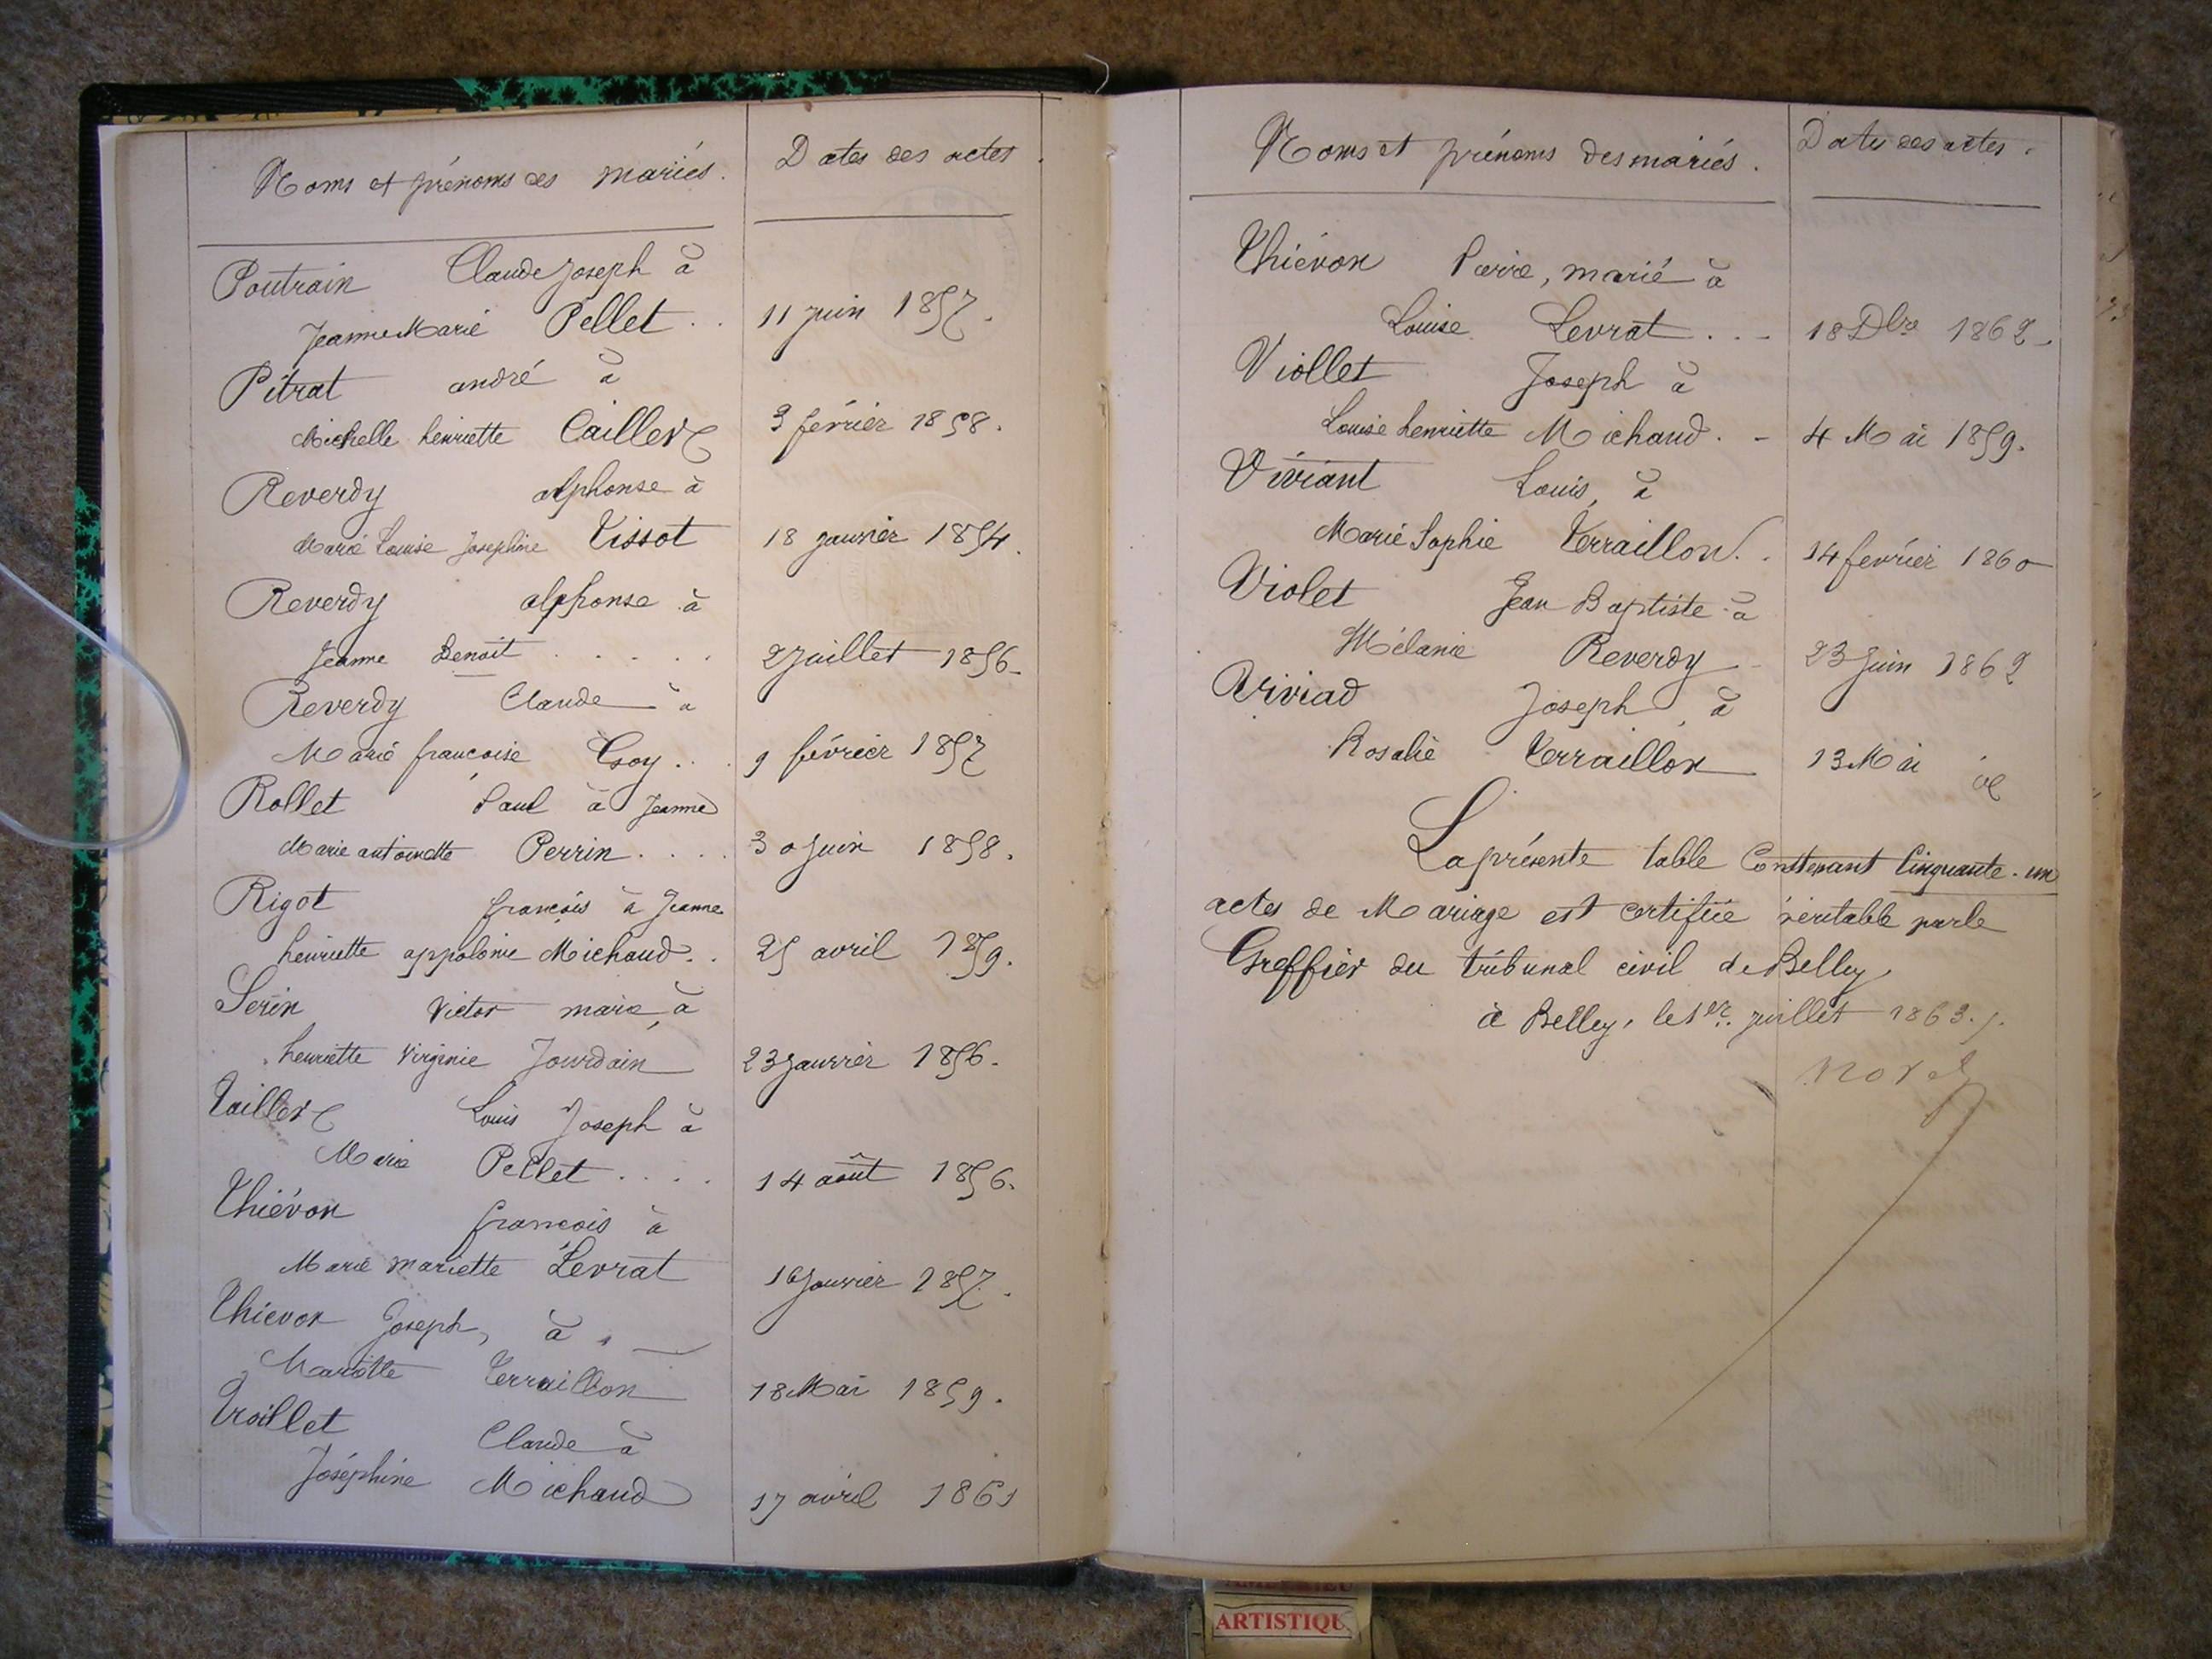 Noms et prénoms des mariés. Dates des actes.
Poutrain Claude Joseph à
Jeanne Marie Pellet . . 11 juin 1857.
Pitrat andré à
Michelle henriette Cailler 3 février 1858.
Reverdy alphonse à
Marie Louise Josephine Tissot 18 janvier 1854.
Reverdy alphonse à
Jeanne Benoit . . . . . 2 juillet 1856.
Reverdy Claude à
Marie françoise Goy . . 9 février 1857
Rollet Paul à Jeanne
Marie antoinette Perrin . . . . 30 juin 1858.
Rigot françois à Jeanne
henriette appolonie Michaud . . 25 avril 1859.
Serin Victor marie, à
henriette Virginie Jourdain 23 janvier 1856.
Tailler Louis Joseph à
Marie Pellet . . . . 14 août 1856.
Thiévon françois à
Marie mariette Levrat 16 janvier 1857.
Thievon Joseph, à
Mariette Terraillon 18 Mai 1859.
Troillet Claude à
Joséphine Michaud 17 avril 1861
Noms et prénoms des mariés. Dates des actes.
Thiévon Pierre, marié à
Louise Levrat . . . 18 Dbre 1862.
Viollet Joseph à
Louise henriette Michaud . - 4 Mai 1859.
Viviant Louis, à
Marie Sophie Terraillon . . 14 fevrier 1860
Violet Jean Baptiste à
Mélanie Reverdy 23 Juin 1862
Viviad Joseph, à
Rosalie Terraillon 13 Mai
La présente table Contenant Cinquante-un
actes de Mariage est certifiée véritable par le
Greffier du tribunal civil de Belley
à Belley, le 1er juillet 1863.
ARTISTIQU